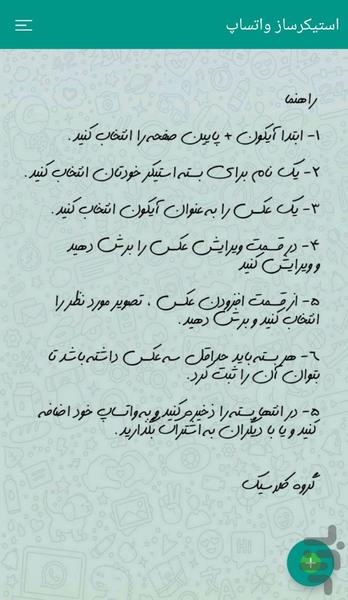 استیکرساز واتساپ
راهنما
۱- ابتدا آیکون + پایین صفحه را انتخاب کنید.
۲- یک نام برای بسته استیکر خودتان انتخاب کنید.
۳- یک عکس را به عنوان آیکون انتخاب کنید.
۴- در قسمت ویرایش عکس را برش دهید
و ویرایش کنید
۵- از قسمت افزودن عکس ، تصویر مورد نظر را
انتخاب کنید و برش دهید.
۶- هر بسته باید حداقل سه عکس داشته باشد تا
بتوان آن را ثبت کرد.
۵- در انتها بسته را ذخیره کنید و به واتساپ خود اضافه
کنید و یا با دیگران به اشتراک بگذارید.
گروه کلاسیک
+